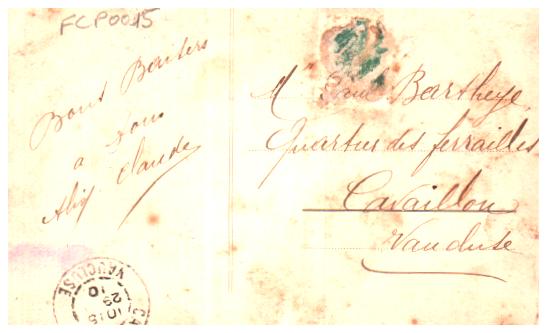 FCP0015
Bons Baisers
a vous
Claude
M Paul Bartheye
Quartier des ferrailles
Cavaillon
Vaucluse
VAUCLUSE